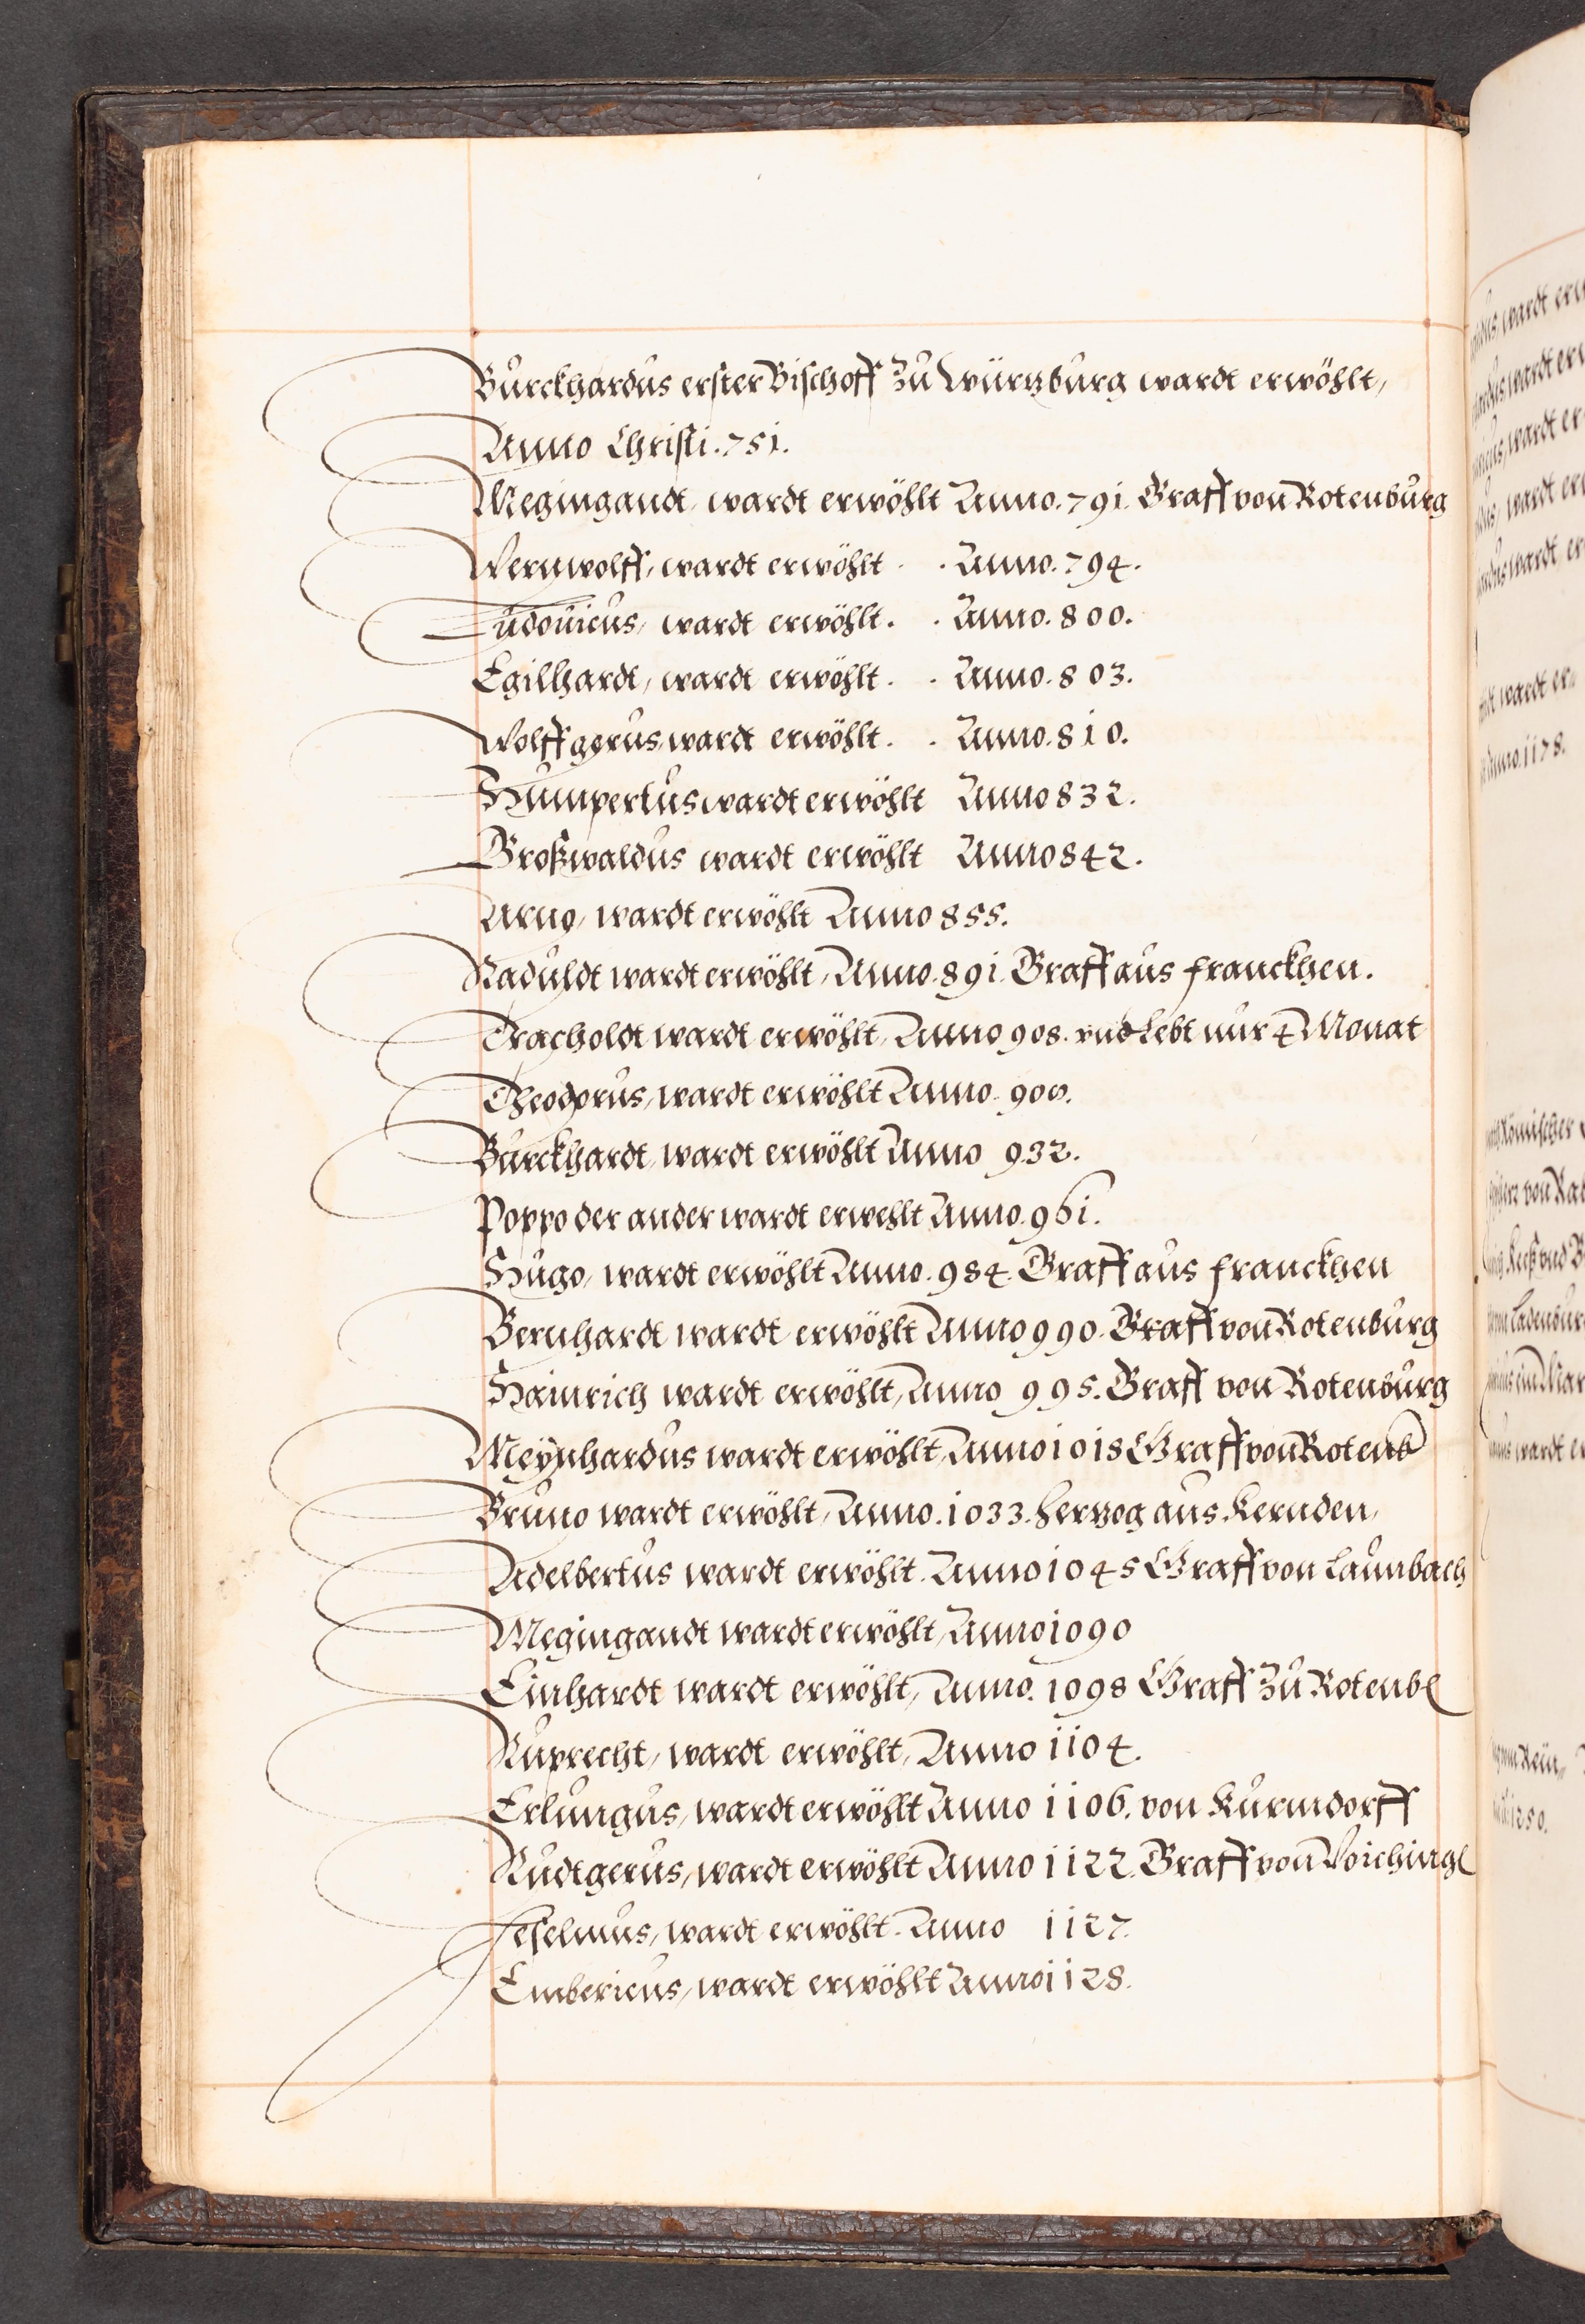 Burckhardus erster Bischoff Zu Würtzburg wardt erwöhlt,
Anno Christi. 751.
Megingandt, wardt erwöhlt Anno. 791. Graff von Rotenburg
Wernwolff, wardt erwöhlt . . Anno. 794.
Ludouicus, wardt erwöhlt. . Anno. 800.
Egilhardt, wardt erwöhlt. . Anno. 803.
Wolffgerus, wardt erwöhlt. . Anno. 810.
Humpertus wardt erwöhlt Anno 832.
Großwaldus wardt erwöhlt Anno 842.
Arno, wardt erwöhlt Anno 855.
Raduldt wardt erwöhlt, Anno. 891. Graff aus franckhen.
Tracholdt wardt erwöhlt, Anno 908. vnd Lebt nur 4 Monat
Theodorus, wardt erwöhlt Anno.
Burckhardt, wardt erwöhlt Anno 932.
Poppo der ander wardt erwehlt Anno. 961.
Hugo, wardt erwöhlt Anno. 984. Graff aus franckhen
Bernhardt wardt erwöhlt Anno 990. Graff von Rotenburg
Hainrich wardt erwöhlt, Anno 995. Graff von Rotenburg
Meÿnhardus wardt erwöhlt, Anno 1018 Graff von Rotenb
Bruno wardt erwöhlt, Anno. 1033. Hertzog aus Kernden,
Adelbertus wardt erwöhlt. Anno 1045 Graff von Laumbach
Megingandt wardt erwöhlt, Anno 1090
Einhardt wardt erwöhlt, Anno. 1098 Graff Zu Rotenb
Ruprecht, wardt erwöhlt, Anno 1104.
Erlungus, wardt erwöhlt Anno 1106. von Kurmdorff
Rudtgerus, wardt erwöhlt Anno 1122. Graff von Voiching
wardt erwöhlt. Anno 1127.
Embericus, wardt erwöhlt Anno 1128.
wardt
wardt
wardt
wardt
wardt
wardt er
Anno. 1178.
Römischer
von
vnd
Ladenbur
wardt
1250.